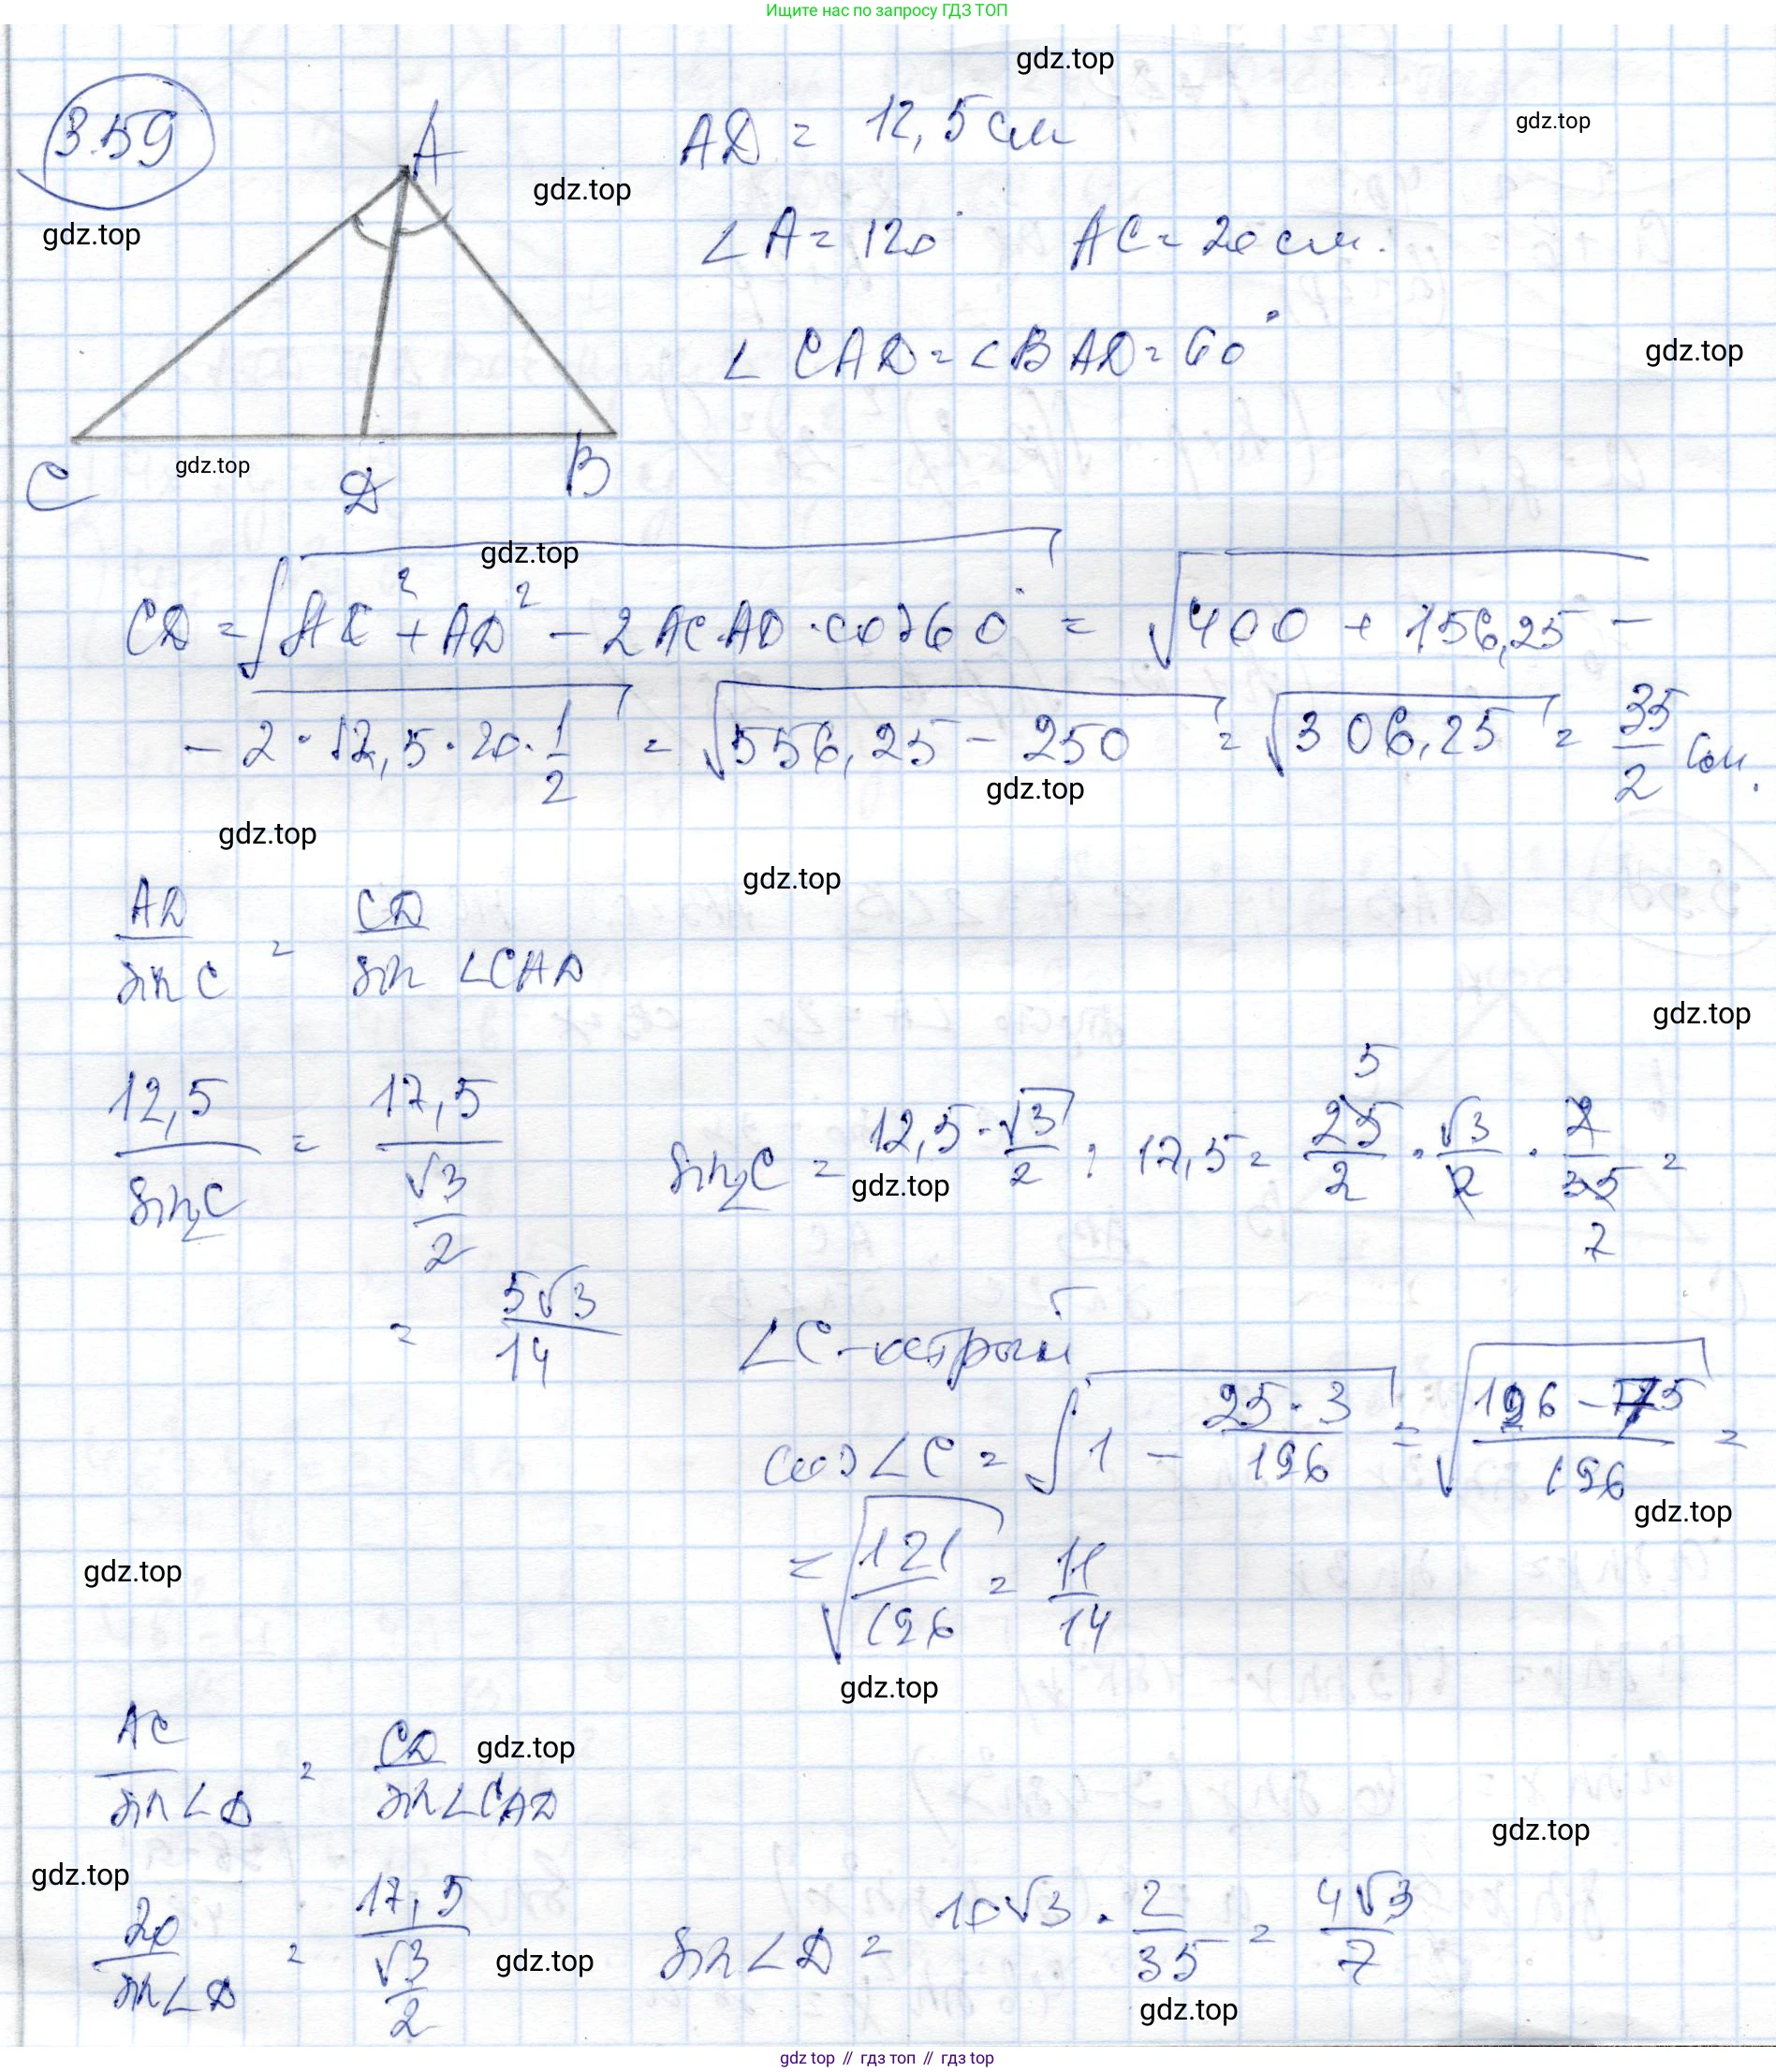 Ищите нас по запросу ГДЗ ТОП
gdz.top
3.59
A
AD = 12,5 см
gdz.top
gdz.top
gdz.top
∠A = 120° AC = 20 см.
∠CAD = ∠BAD = 60°
gdz.top
C D B
gdz.top
gdz.top
CD = √(AC² + AD² − 2AC·AD·cos60°) = √(400 + 156,25 −
− 2·12,5·20·1/2) = √(556,25 − 250) = √306,25 = 35/2 см.
gdz.top
gdz.top
gdz.top
AD/sin C = CD/sin ∠CAD
gdz.top
12,5/sin∠C = 17,5/(√3/2) sin∠C = 12,5·√3/2 : 17,5 = 25/2 · √3/2 · 2/35 =
5
7
gdz.top
= 5√3/14 ∠C - острый
cos∠C = √(1 − 25·3/196) = √((196 − 75)/196) =
gdz.top
= √(121/196) = 11/14
gdz.top
gdz.top
AC/sin∠D = CD/sin∠CAD
gdz.top
gdz.top
gdz.top
20/sin∠D = 17,5/(√3/2) sin∠D = 10√3 · 2/35 = 4√3/7
gdz.top
gdz.top
gdz top // гдз топ // гдз top